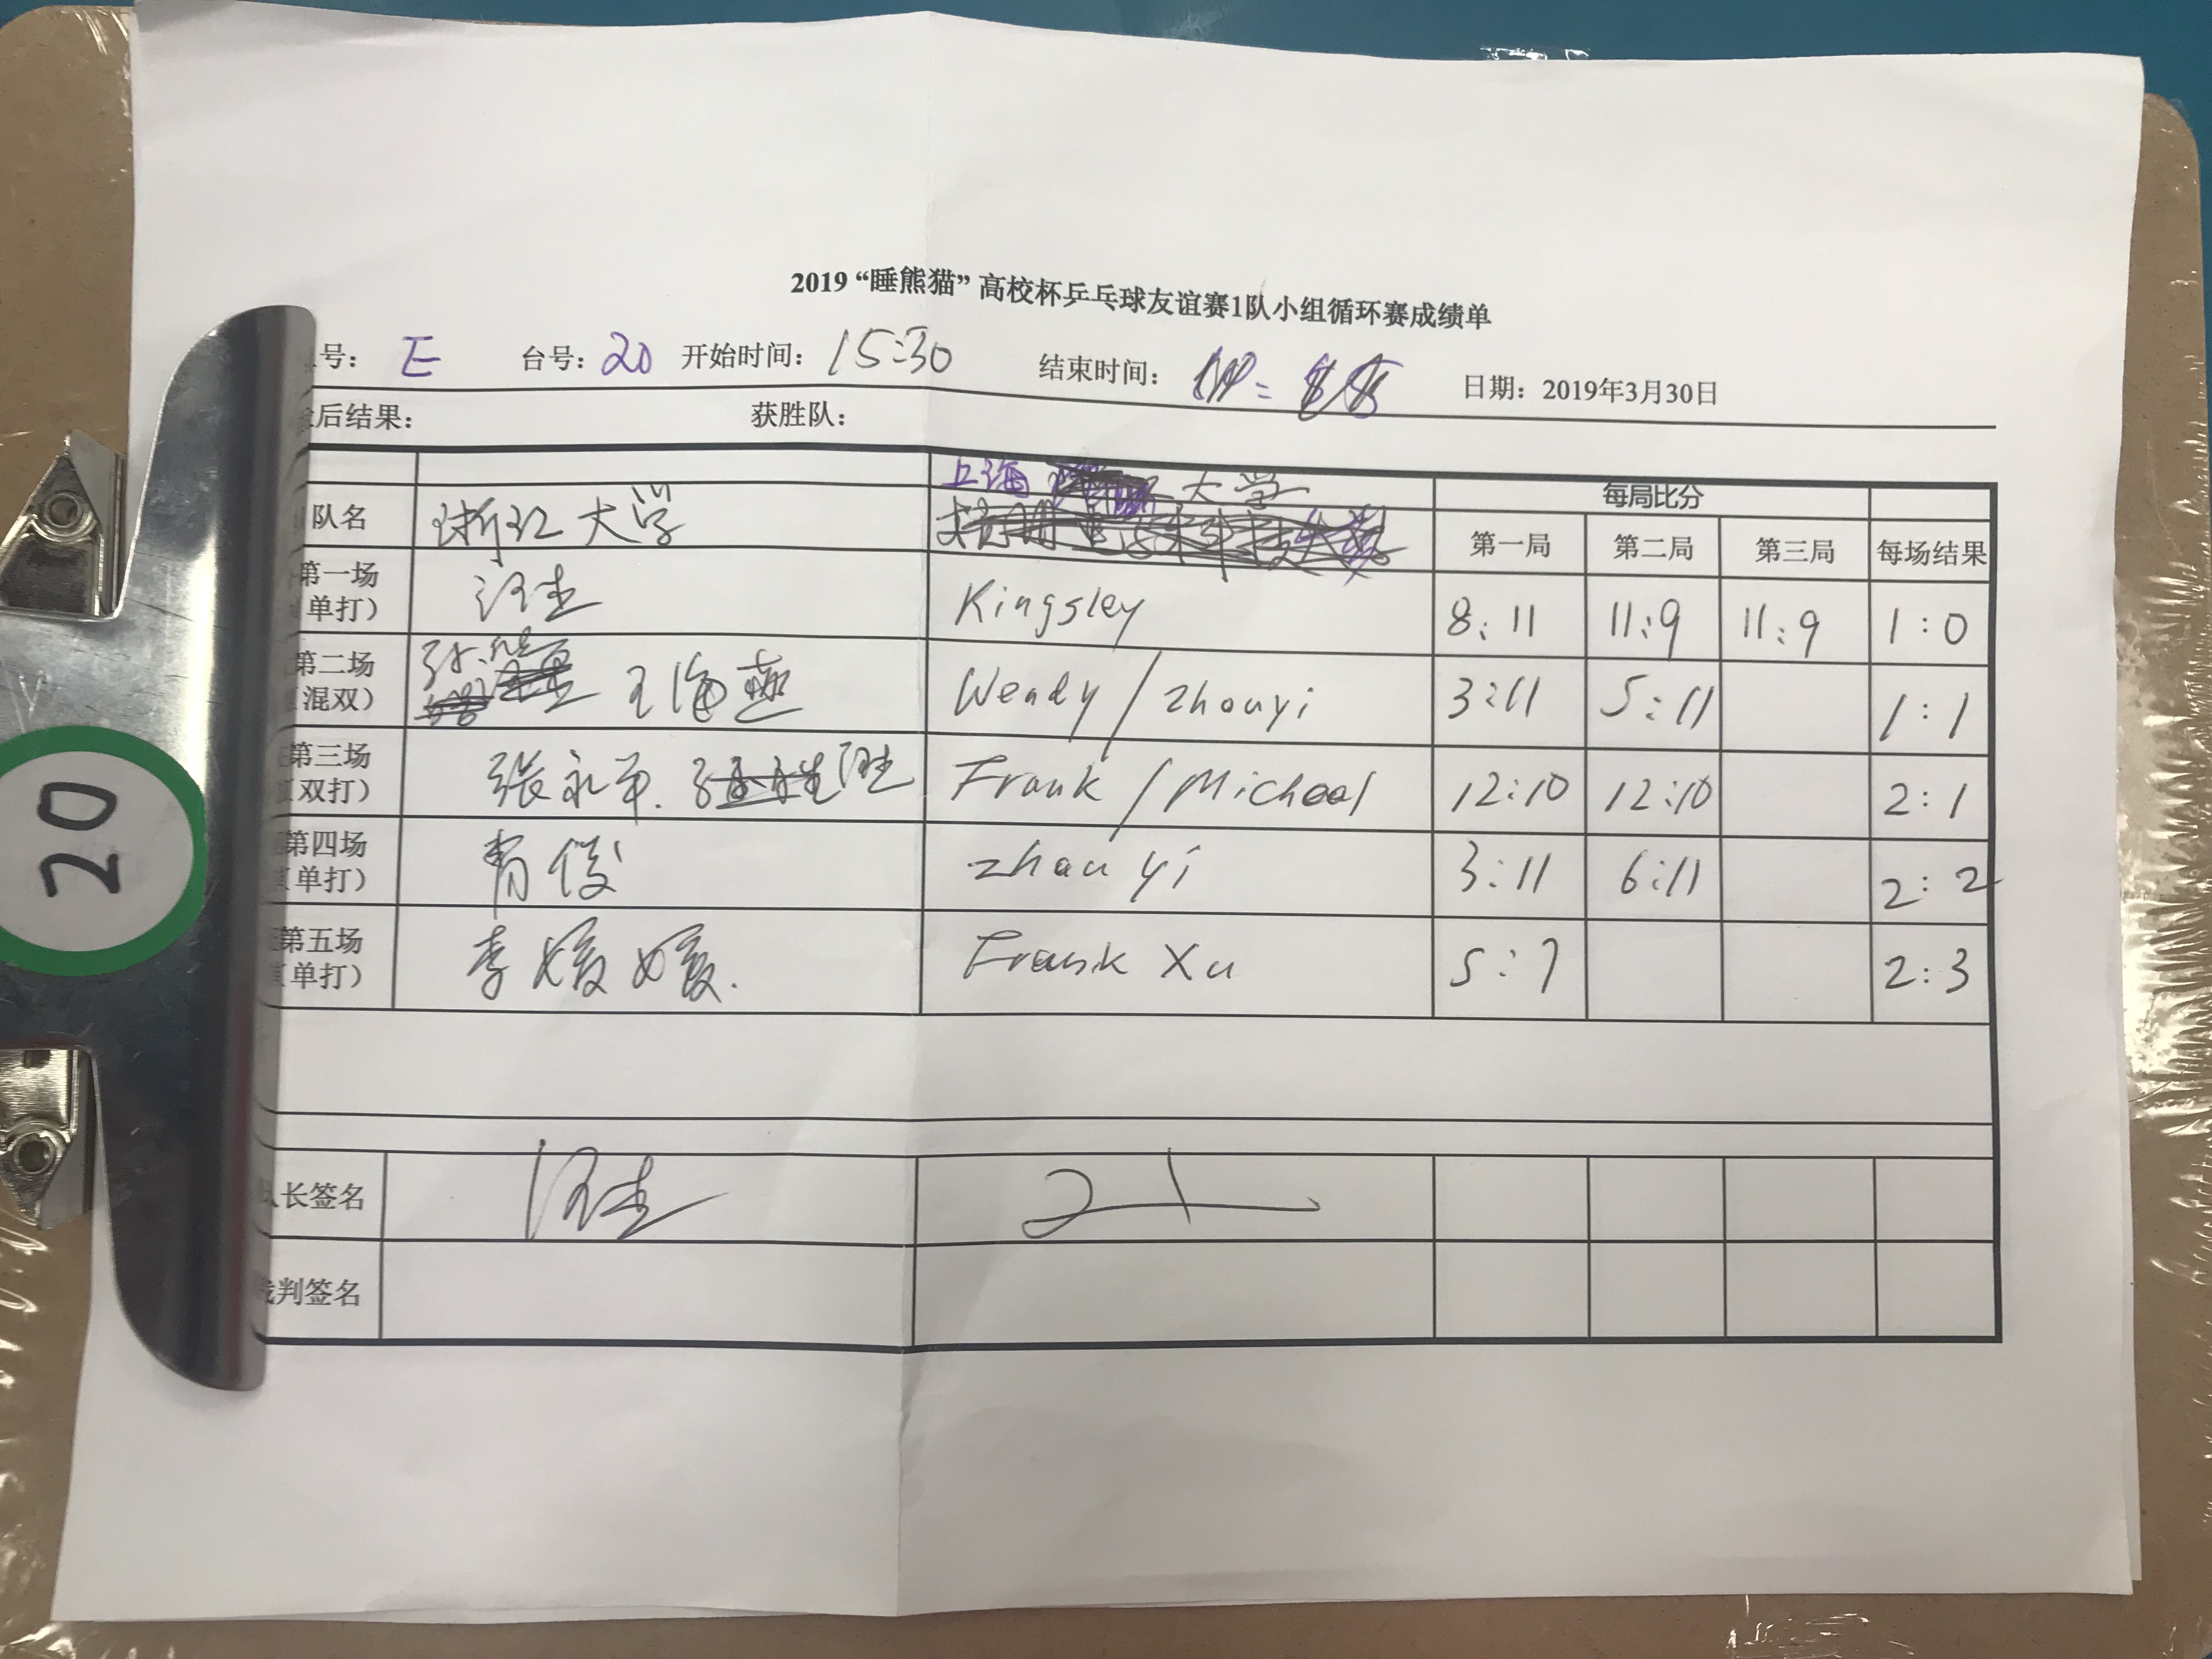 2019 “睡熊猫” 高校杯乒乓球友谊赛1队小组循环赛成绩单
号： E 台号： 20 开始时间： 15:30 结束时间： 日期： 2019年3月30日
后结果： 获胜队：
上海 大学 每局比分
队名 浙江大学 第一局 第二局 第三局 每场结果
第一场
（单打） 汪杰 Kingsley 8:11 11:9 11:9 1:0
第二场
（混双） 王海燕 Wendy / zhouyi 3:11 5:11 1:1
第三场
（双打） 张永军. Frank / Micheal 12:10 12:10 2:1
第四场
（单打） 俊 zhou yi 3:11 6:11 2:2
第五场
（单打） 李媛媛. Frank Xu 5:7 2:3
长签名
判签名
20